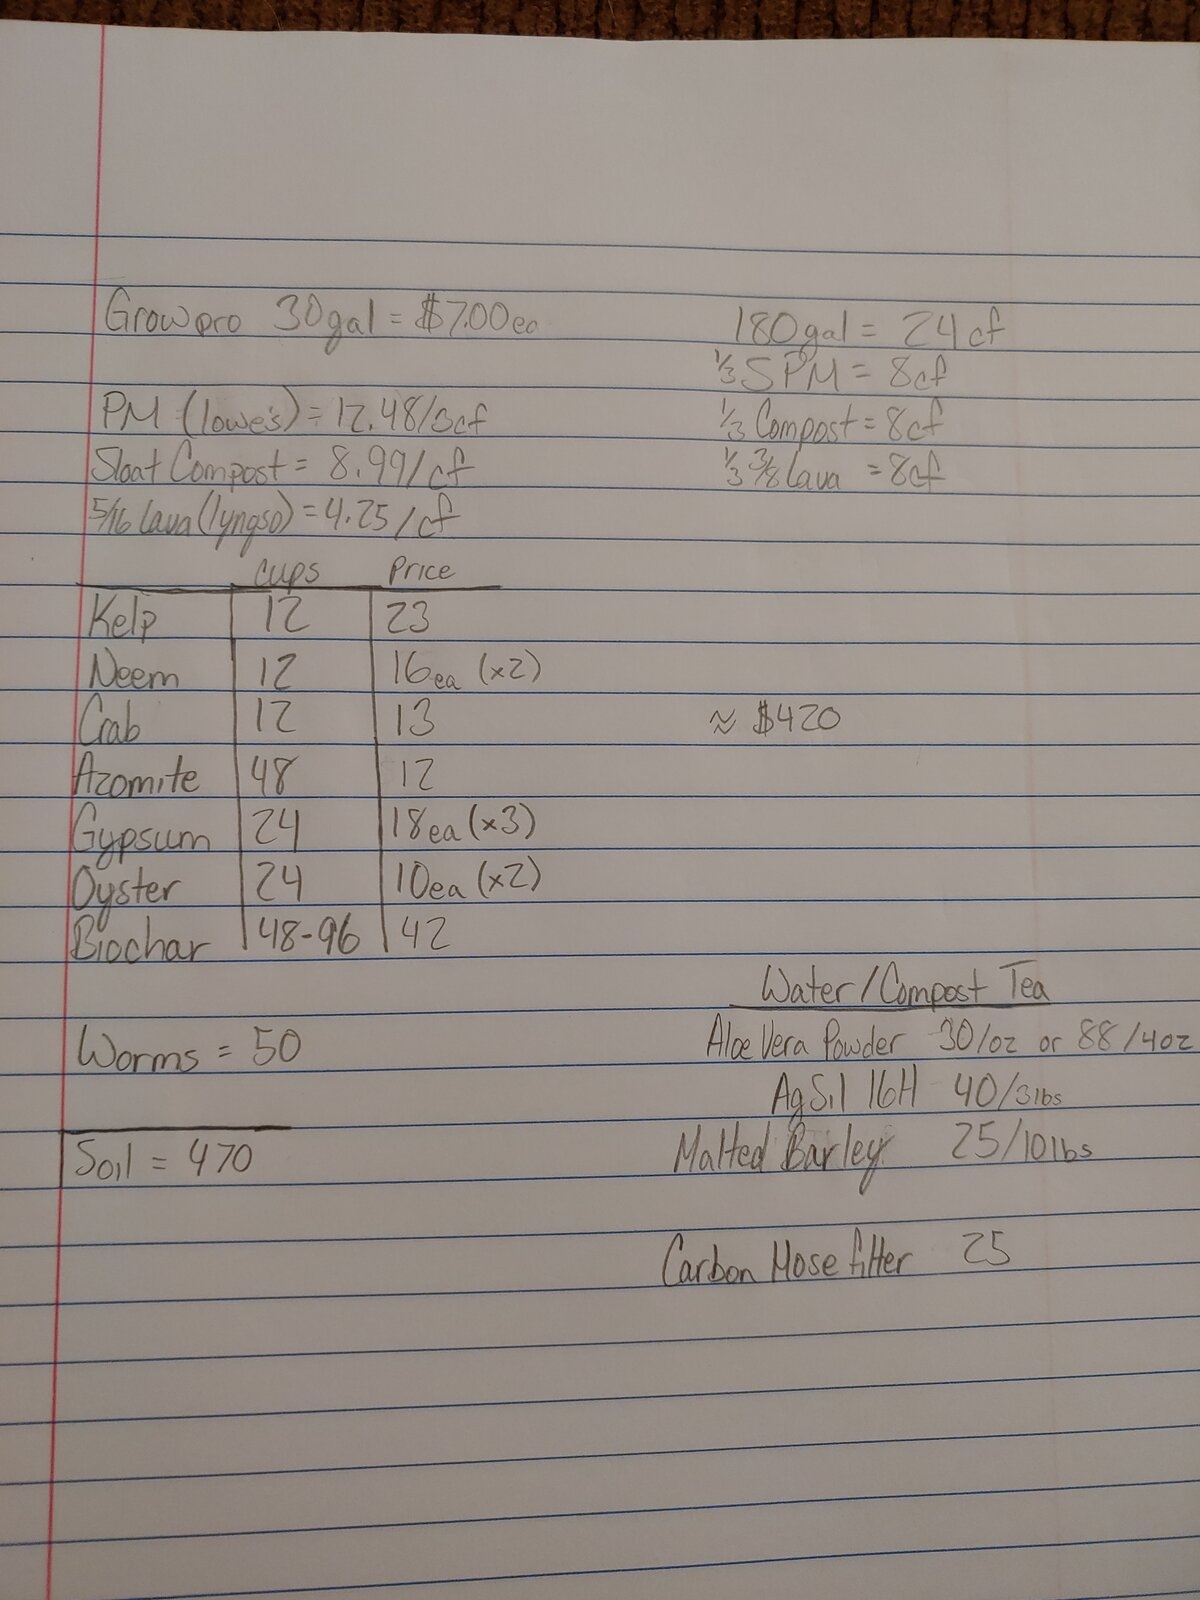 Growpro 30gal = $7.00ea
180gal = 24cf
1/3 SPM = 8cf
PM (lowe's) = 12.48/3cf
1/3 Compost = 8cf
Sloat Compost = 8.99/cf
1/3 3/8 lava = 8cf
5/16 lava (lyngso) = 4.25/cf
cups Price
Kelp 12 23
Neem 12 16ea (x2)
Crab 12 13
≈ $420
Azomite 48 12
Gypsum 24 18ea (x3)
Oyster 24 10ea (x2)
Biochar 48-96 42
Water/Compost Tea
Worms = 50
Aloe Vera Powder 30/oz or 88/4oz
AgSil 16H 40/3lbs
Soil = 470
Malted Barley 25/10lbs
Carbon Hose filter 25